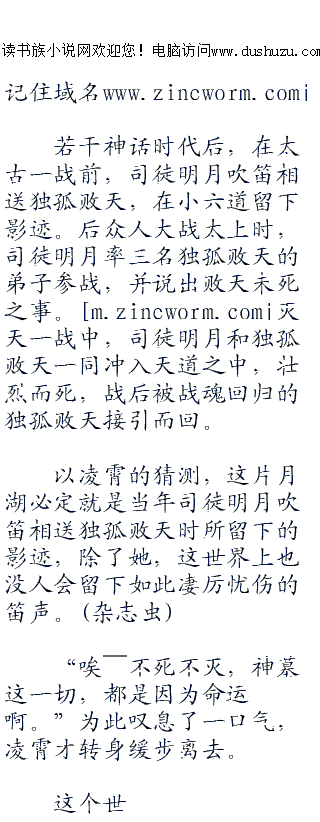 读书族小说网欢迎您！电脑访问www.dushuzu.com
记住域名www.zincworm.com|
若干神话时代后，在太
古一战前，司徒明月吹笛相
送独孤败天，在小六道留下
影迹。后众人大战太上时，
司徒明月率三名独孤败天的
弟子参战，并说出败天未死
之事。[m.zincworm.com|灭
天一战中，司徒明月和独孤
败天一同冲入天道之中，壮
烈而死，战后被战魂回归的
独孤败天接引而回。
以凌霄的猜测，这片月
湖必定就是当年司徒明月吹
笛相送独孤败天时所留下的
影迹，除了她，这世界上也
没人会留下如此凄厉忧伤的
笛声。(杂志虫)
“唉——不死不灭，神墓
这一切，都是因为命运
啊。”为此叹息了一口气，
凌霄才转身缓步离去。
这个世